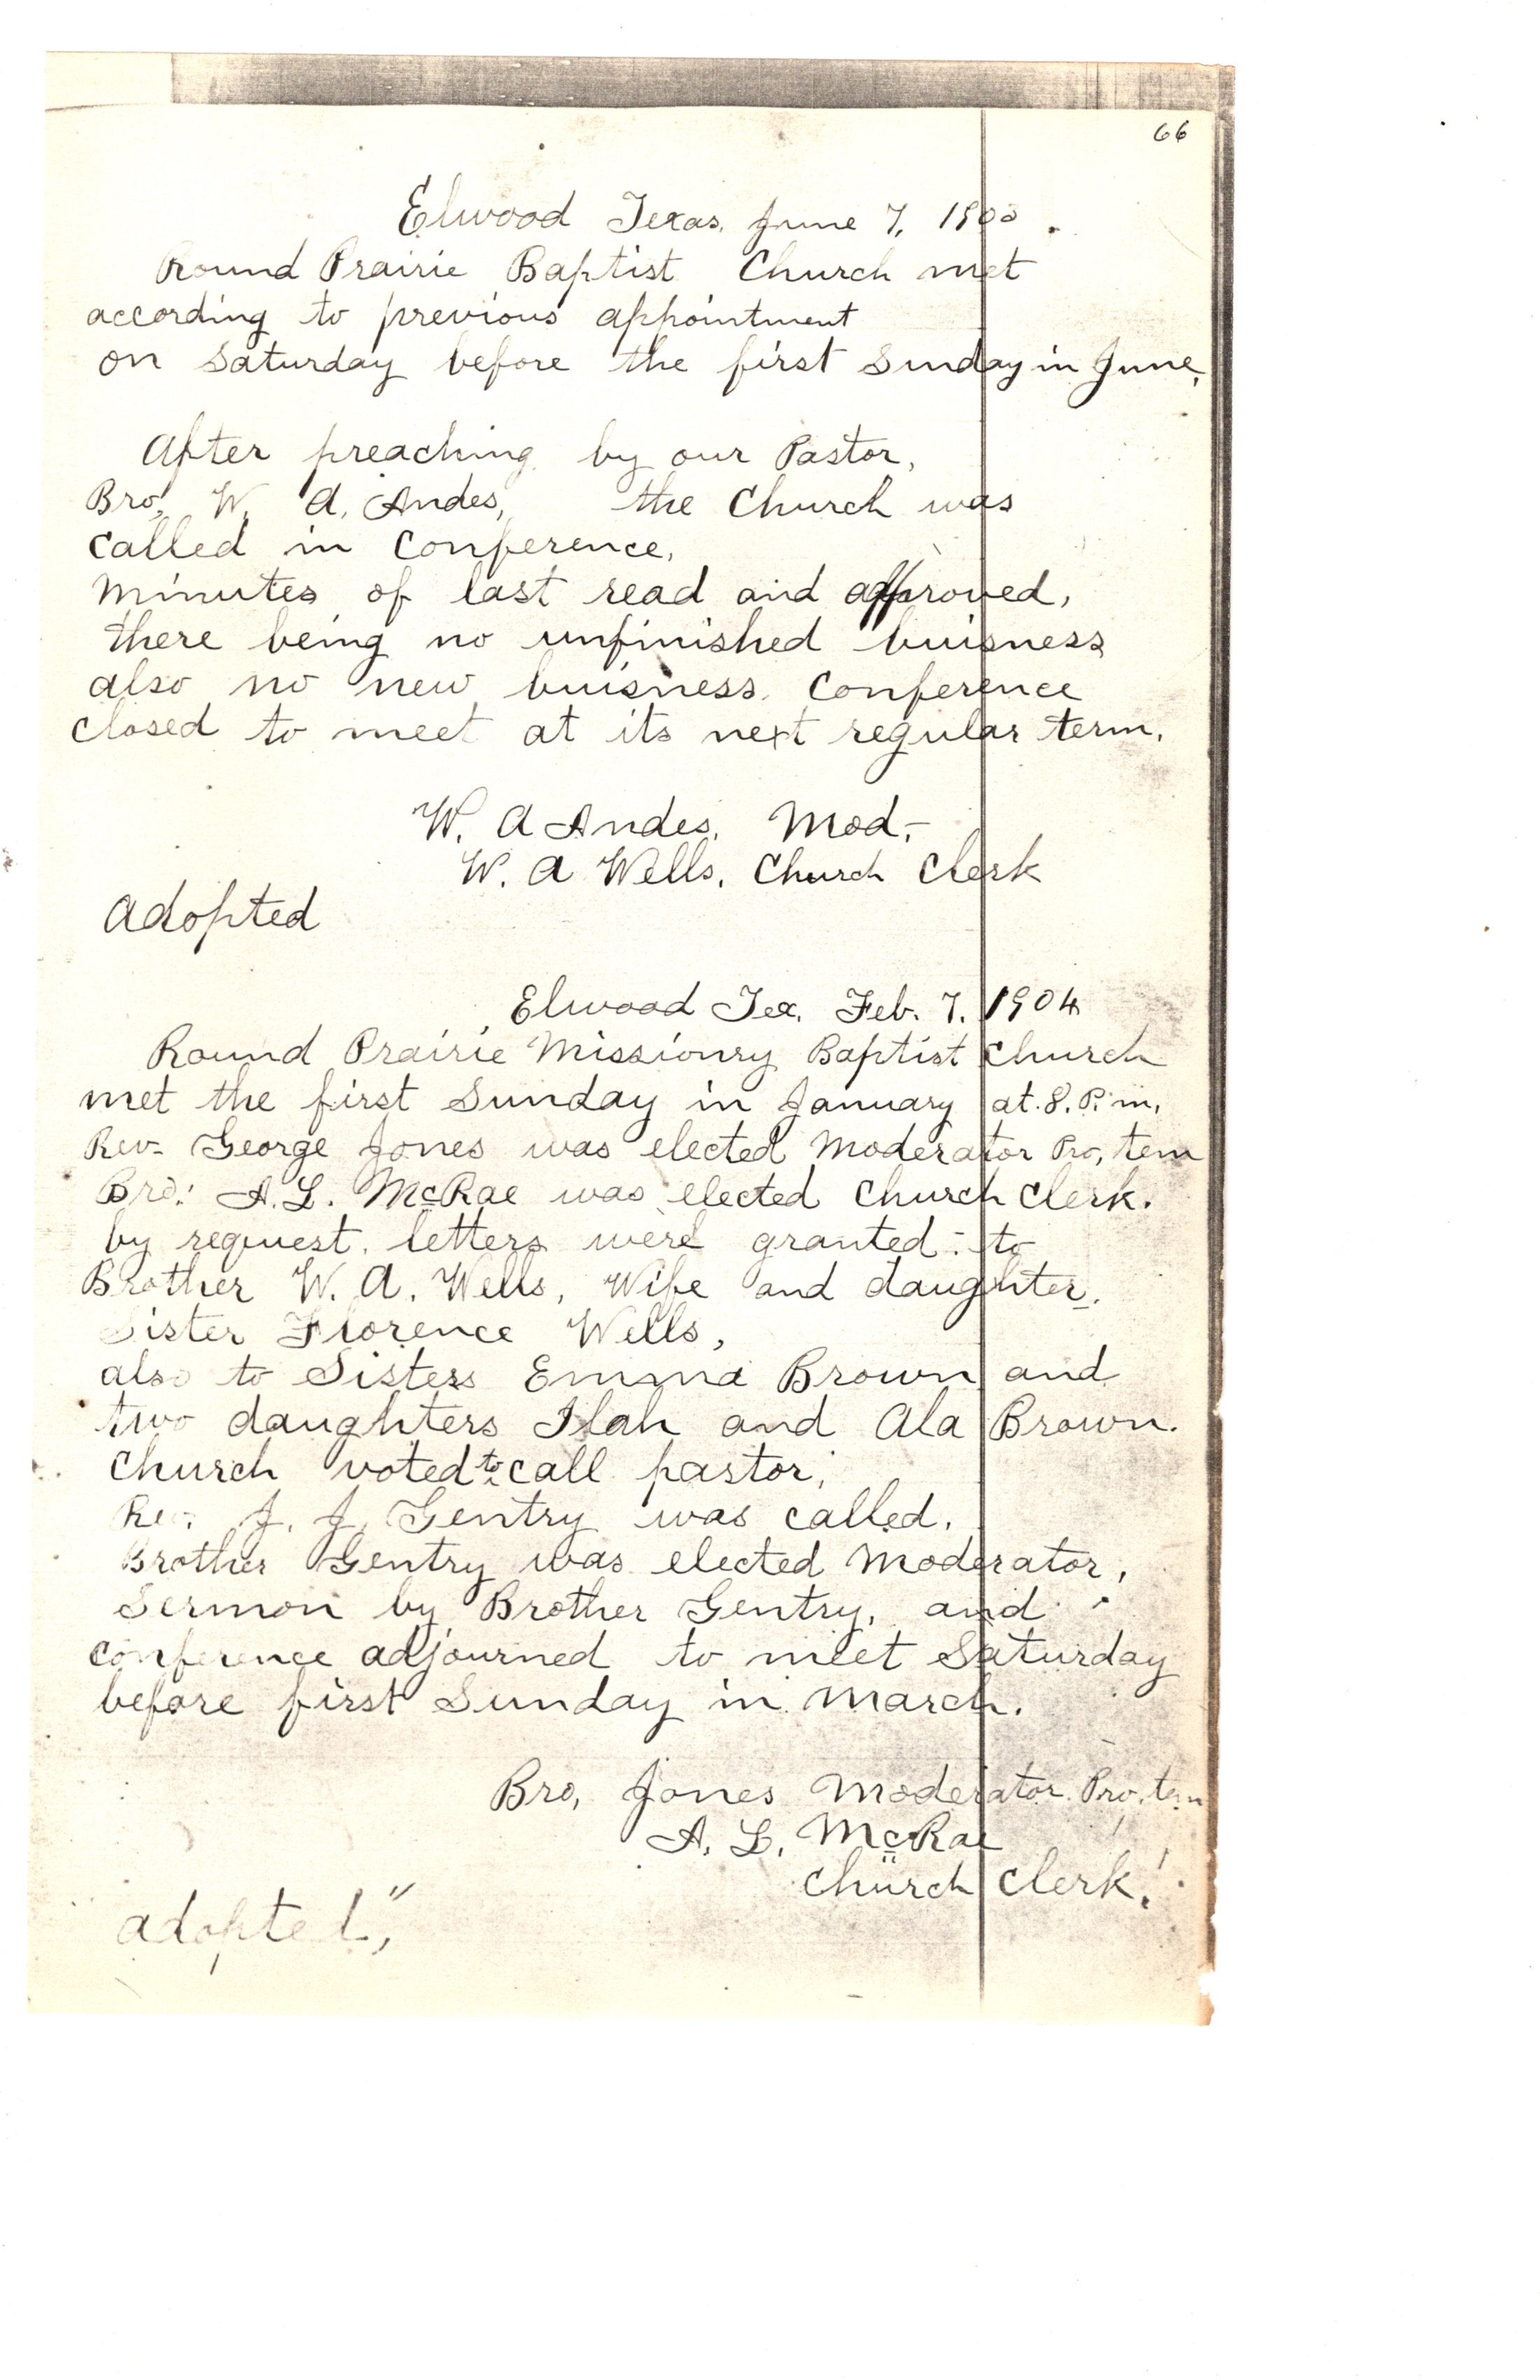 66
Elwood Texas, June 7, 1903.
Round Prairie Baptist Church met
according to previous appointment
on Saturday before the first Sunday in June,
After preaching by our Pastor,
Bro. W. A. Andes, the Church was
called in Conference,
minutes of last read and approved,
there being no unfinished buisness
also no new buisness. Conference
closed to meet at its next regular term.
W. A Andes, Mod,-
W. A Wells, Church Clerk
Adopted
Elwood Tex. Feb. 7. 1904
Round Prairie Missionry Baptist Church
met the first Sunday in January at 8. P. m.
Rev- George Jones was elected Moderator Pro, tem
Bro: A. L. McRae was elected Church Clerk.
by request. letters were granted - to
Brother W. A. Wells, Wife and daughter.
Sister Florence Wells,
also to Sisters Emma Brown and
two daughters Ilah and Ala Brown.
Church voted to call pastor;
Rev. J. J. Gentry was called.
Brother Gentry was elected Moderator,
Sermon by Brother Gentry, and
conference adjourned to meet Saturday
before first Sunday in March.
Bro, Jones Moderator Pro, tem
A. L. McRae
Church Clerk.
adopted,"